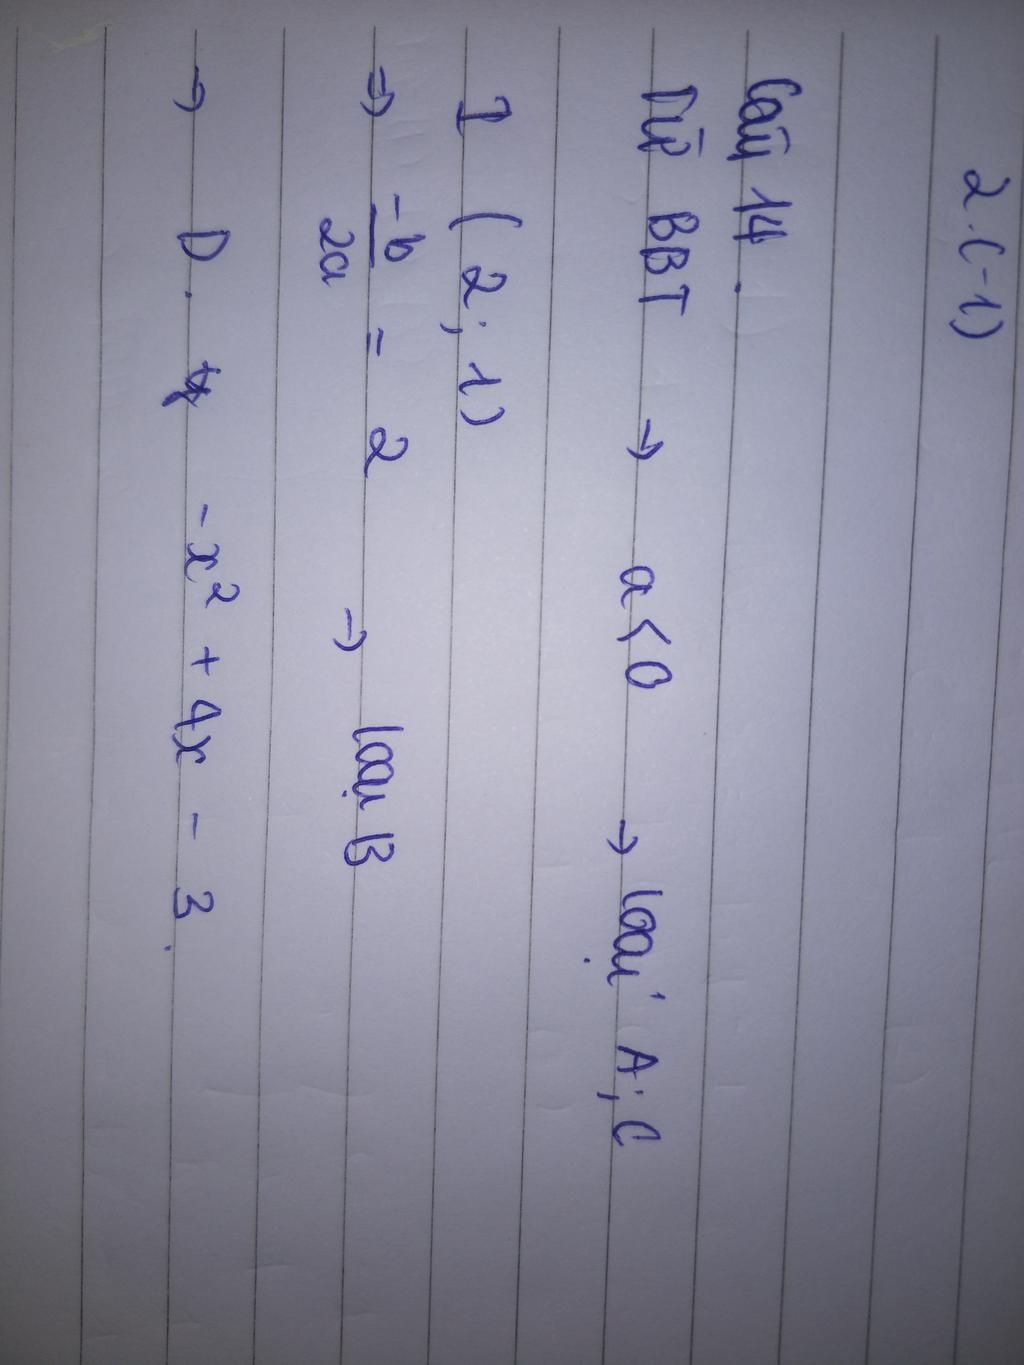 2.(-1)
Câu 14.
Từ BBT → a<0 → loại A; C
I (2; 1)
⇒ -b/2a = 2 → loại B
→ D. -x² + 4x - 3.